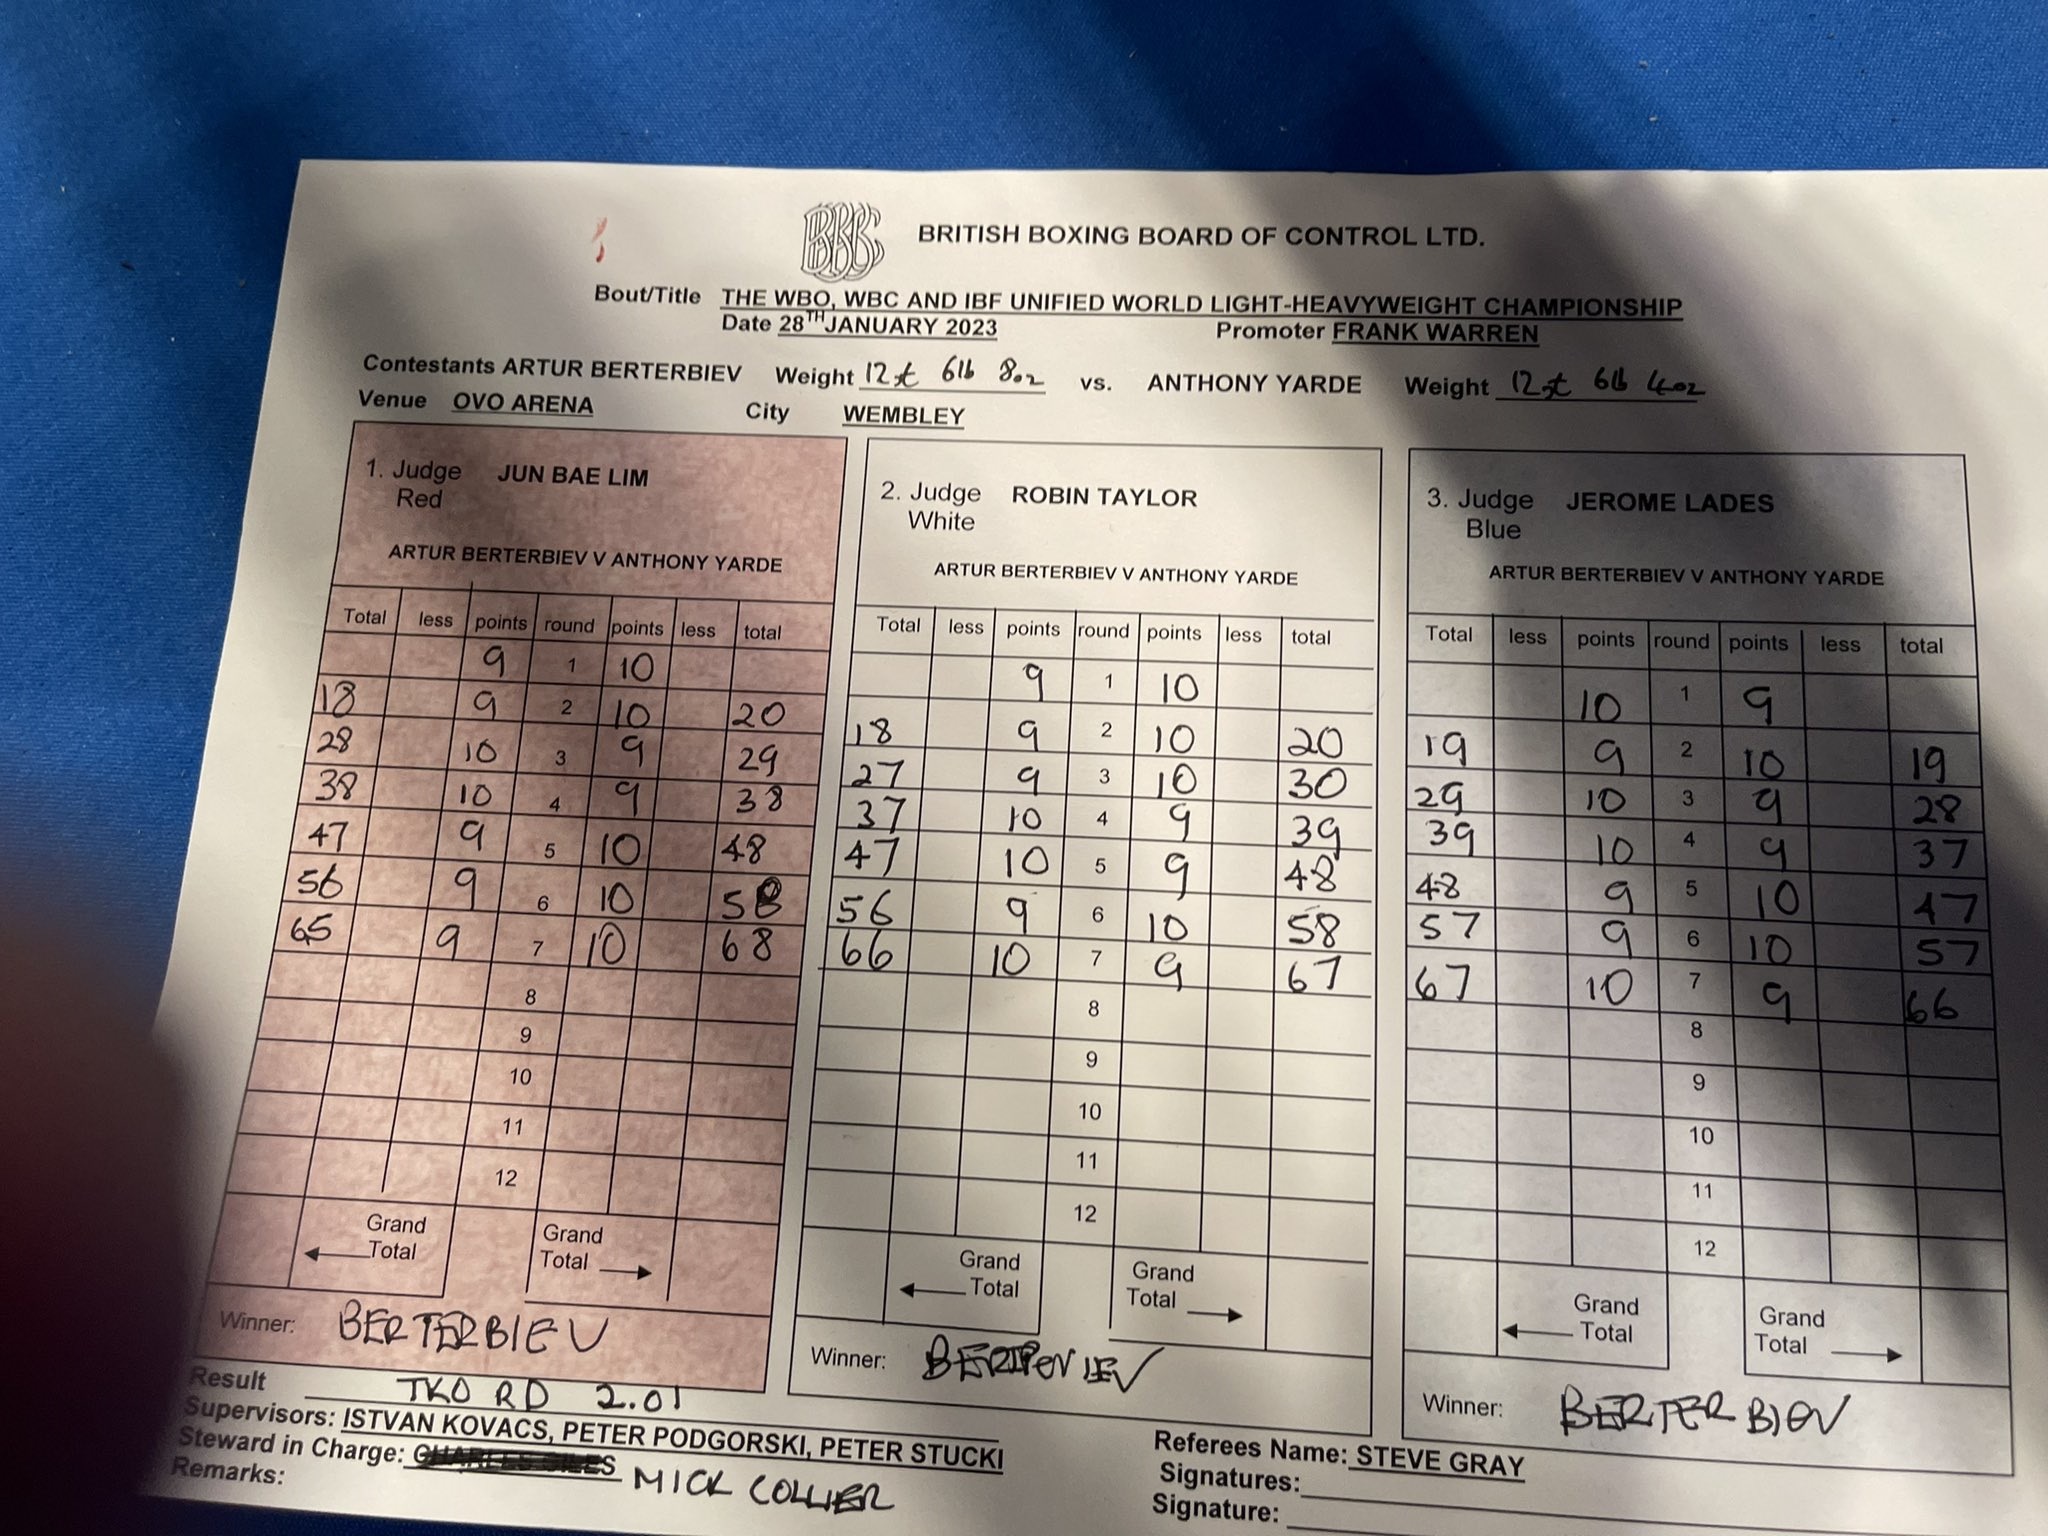 BBBC
BRITISH BOXING BOARD OF CONTROL LTD.
Bout/Title THE WBO, WBC AND IBF UNIFIED WORLD LIGHT-HEAVYWEIGHT CHAMPIONSHIP
Date 28TH JANUARY 2023 Promoter FRANK WARREN
Contestants ARTUR BERTERBIEV Weight 12st 6lb 8oz vs. ANTHONY YARDE Weight 12st 6lb 4oz
Venue OVO ARENA City WEMBLEY
1. Judge JUN BAE LIM
Red
ARTUR BERTERBIEV V ANTHONY YARDE
Total less points round points less total
9 1 10
18 9 2 10 20
28 10 3 9 29
38 10 4 9 38
47 9 5 10 48
56 9 6 10 58
65 9 7 10 68
8
9
10
11
12
Grand Total Grand Total
Winner: BERTERBIEV
2. Judge ROBIN TAYLOR
White
ARTUR BERTERBIEV V ANTHONY YARDE
Total less points round points less total
9 1 10
18 9 2 10 20
27 9 3 10 30
37 10 4 9 39
47 10 5 9 48
56 9 6 10 58
66 10 7 9 67
8
9
10
11
12
Grand Total Grand Total
Winner:
3. Judge JEROME LADES
Blue
ARTUR BERTERBIEV V ANTHONY YARDE
Total less points round points less total
10 1 9
19 9 2 10 19
29 10 3 9 28
39 10 4 9 37
48 9 5 10 47
57 9 6 10 57
67 10 7 9 66
8
9
10
11
12
Grand Total Grand Total
Winner: BERTERBIEV
Result TKO RD 2.01
Supervisors: ISTVAN KOVACS, PETER PODGORSKI, PETER STUCKI
Steward in Charge: MICK COLLIER
Remarks:
Referees Name: STEVE GRAY
Signatures:
Signature: